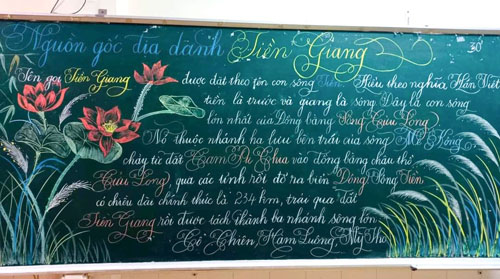 Nguồn gốc địa danh Tiền Giang
30
Tên gọi Tiền Giang được đặt theo tên con sông Tiền. Hiểu theo nghĩa Hán Việt
tiền là trước và giang là sông. Đây là con sông
lớn nhất của Đồng bằng Sông Cửu Long
Nó thuộc nhánh hạ lưu bên trái của sông Mê Kông
chảy từ đất Cam Pu Chia vào đồng bằng châu thổ
Cửu Long, qua các tỉnh rồi đổ ra biển Đông. Sông Tiền
có chiều dài chính thức là 234 km, trải qua đất
Tiền Giang rồi được tách thành ba nhánh sông lớn
Cổ Chiên, Hàm Luông, Mỹ Tho